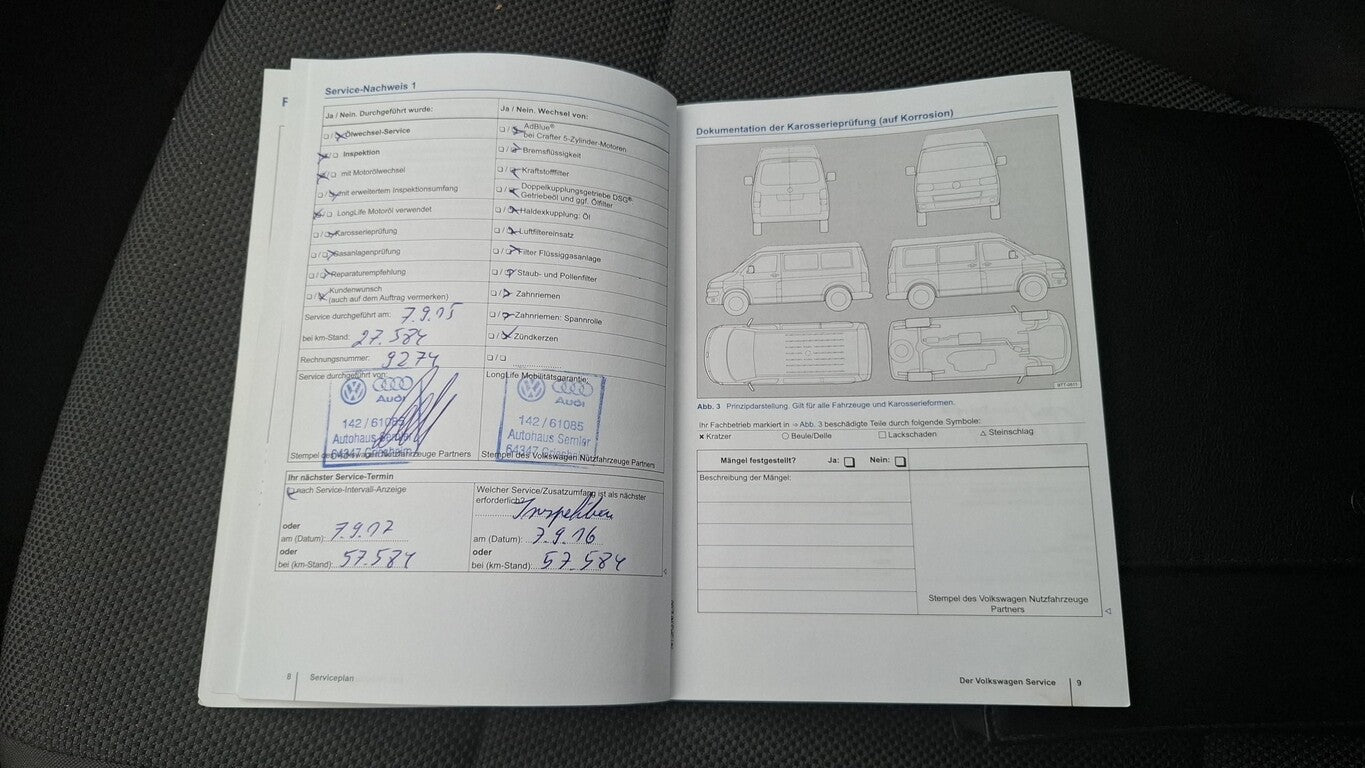 F
Service-Nachweis 1
Ja / Nein. Durchgeführt wurde:
Ölwechsel-Service
Inspektion
mit Motorölwechsel
mit erweitertem Inspektionsumfang
LongLife Motoröl verwendet
Karosserieprüfung
Gasanlagenprüfung
Reparaturempfehlung
Kundenwunsch
(auch auf dem Auftrag vermerken)
Service durchgeführt am: 7.9.15
bei km-Stand: 27.584
Rechnungsnummer: 9274
Service durchgeführt von:
Audi
142 / 61085
Autohaus Semler
64347 Griesheim
Stempel des Volkswagen Nutzfahrzeuge Partners
Ja / Nein. Wechsel von:
AdBlue®
bei Crafter 5-Zylinder-Motoren
Bremsflüssigkeit
Kraftstofffilter
Doppelkupplungsgetriebe DSG®:
Getriebeöl und ggf. Ölfilter
Haldexkupplung: Öl
Luftfiltereinsatz
Filter Flüssiggasanlage
Staub- und Pollenfilter
Zahnriemen
Zahnriemen: Spannrolle
Zündkerzen
LongLife Mobilitätsgarantie:
Audi
142 / 61085
Autohaus Semler
64347 Griesheim
Stempel des Volkswagen Nutzfahrzeuge Partners
Ihr nächster Service-Termin
nach Service-Intervall-Anzeige
oder
am (Datum): 7.9.17
oder
bei (km-Stand): 57.584
Welcher Service/Zusatzumfang ist als nächster
erforderlich?
Inspektion
am (Datum): 7.9.16
oder
bei (km-Stand): 57.584
8 Serviceplan
Dokumentation der Karosserieprüfung (auf Korrosion)
Abb. 3 Prinzipdarstellung. Gilt für alle Fahrzeuge und Karosserieformen.
Ihr Fachbetrieb markiert in ⇒ Abb. 3 beschädigte Teile durch folgende Symbole:
× Kratzer ○ Beule/Delle □ Lackschaden △ Steinschlag
Mängel festgestellt? Ja: Nein:
Beschreibung der Mängel:
Stempel des Volkswagen Nutzfahrzeuge
Partners
Der Volkswagen Service 9